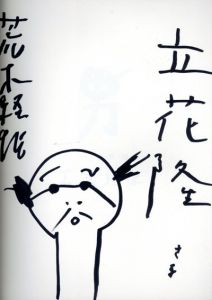 立花隆
さま
荒木経惟